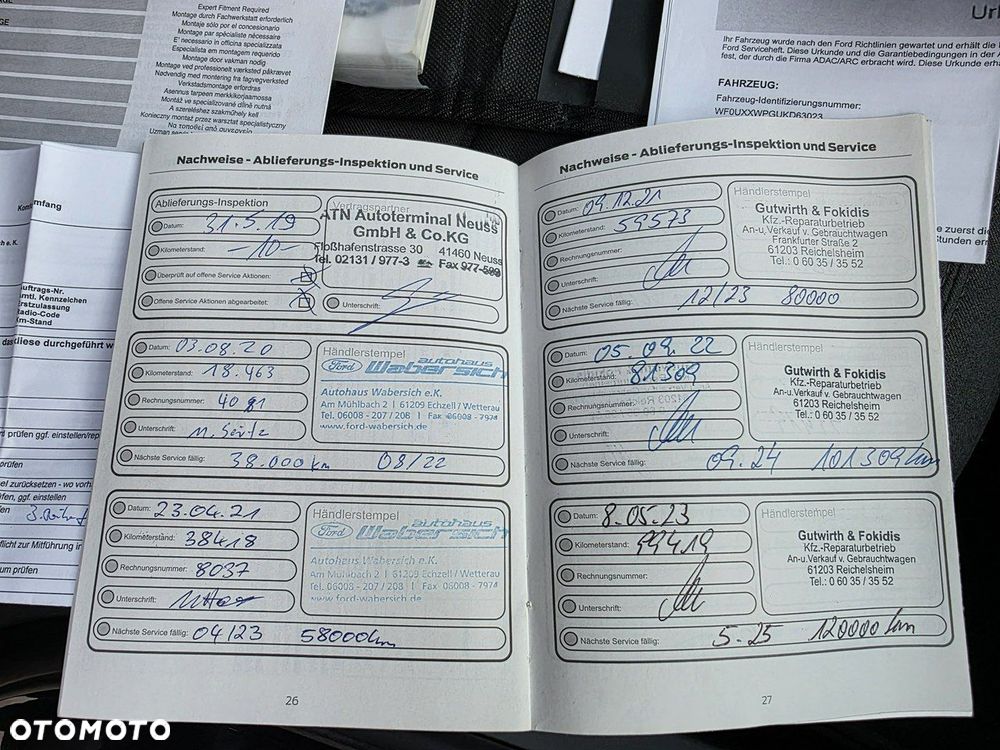 Expert Fitment Required
Montage durch Fachwerkstatt erforderlich
Montaje sólo por el concesionario
Montage par spécialiste nécessaire
E' necessario in officina specializzata
Especialista em montagem requerido
Montage door vakman nodig
Montage ved professionelt værksted påkrævet
Nødvendig med montering fra fagvegverksted
Verkstadsmontage erfordras
Asennus tarpeen merkkikorjaamossa
Montáž ve specializované dílně nutná
A szereléshez szakműhely kell
Konieczny montaż przez warsztat specjalistyczny
Ihr Fahrzeug wurde nach den Ford Richtlinien gewartet und erhält die
Ford Serviceheft. Diese Urkunde und die Garantiebedingungen in der
fest, der durch die Firma ADAC/ARC erbracht wird. Diese Urkunde
FAHRZEUG:
Fahrzeug-Identifizierungsnummer:
WF0UXXWPGUKD63023
Nachweise - Ablieferungs-Inspektion und Service
Ablieferungs-Inspektion
Vertragspartner
Datum: 31.5.19
Kilometerstand: -10-
Überprüft auf offene Service Aktionen:
Offene Service Aktionen abgearbeitet:
ATN Autoterminal Neuss
GmbH & Co.KG
Floßhafenstrasse 30 41460 Neuss
Tel. 02131 / 977-3 Fax 977-599
Unterschrift:
Datum: 03.08.20
Kilometerstand: 18.463
Rechnungsnummer:
Unterschrift:
Nächste Service fällig: 38.000 km 08/22
Händlerstempel
Ford autohaus
Wabersich
Autohaus Wabersich e.K.
Am Mühlbach 2 | 61209 Echzell / Wetterau
Tel. 06008 - 207 / 208 | Fax 06008 - 7974
www.ford-wabersich.de
Datum: 23.04.21
Kilometerstand: 38418
Rechnungsnummer: 8037
Unterschrift:
Nächste Service fällig: 04/23 58000km
Händlerstempel
Ford autohaus
Wabersich
Autohaus Wabersich e.K.
Am Mühlbach 2 | 61209 Echzell / Wetterau
Tel. 06008 - 207 / 208 | Fax 06008 - 7974
www.ford-wabersich.de
26
Nachweise - Ablieferungs-Inspektion und Service
Datum: 09.12.21
Kilometerstand: 59573
Rechnungsnummer:
Unterschrift:
Nächste Service fällig: 12/23 80000
Händlerstempel
Gutwirth & Fokidis
Kfz.-Reparaturbetrieb
An-u,Verkauf v. Gebrauchtwagen
Frankfurter Straße 2
61203 Reichelsheim
Tel.: 0 60 35 / 35 52
Datum: 05.09.22
Kilometerstand: 81309
Rechnungsnummer:
Unterschrift:
Nächste Service fällig: 09.24 101309km
Händlerstempel
Gutwirth & Fokidis
Kfz.-Reparaturbetrieb
An-u.Verkauf v. Gebrauchtwagen
61203 Reichelsheim
Tel.: 0 60 35 / 35 52
Datum: 8.05.23
Kilometerstand: 99419
Rechnungsnummer:
Unterschrift:
Nächste Service fällig: 5-25 120000km
Händlerstempel
Gutwirth & Fokidis
Kfz.-Reparaturbetrieb
An-u.Verkauf v. Gebrauchtwagen
61203 Reichelsheim
Tel.: 0 60 35 / 35 52
27
OTOMOTO